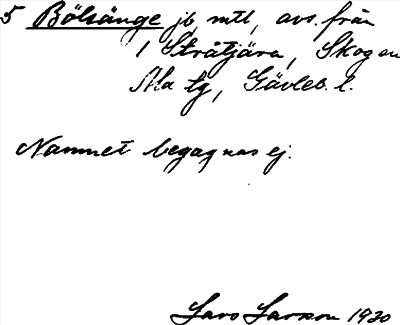 5 Bölsänge jb mtl, avs. från
1 Stråtjära, Skog sn
Ala tg, Gävleb. l.
Namnet begagnas ej.
Lars Larsson 1930